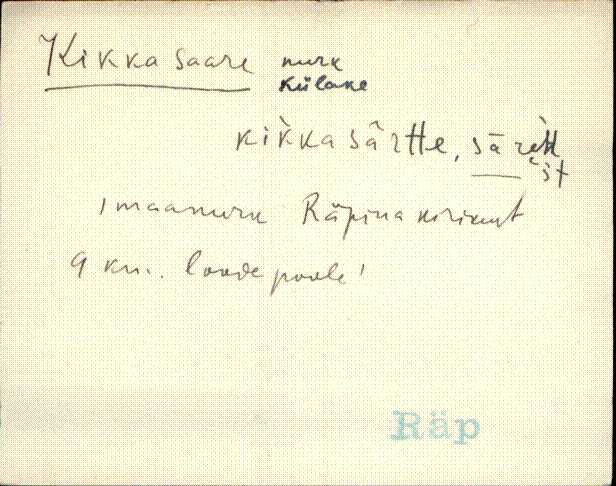 Kikkasaare nurk
külake
kik̀kasârtte, särèt́t
ˇst
'maanurk Räpina kirikust
9 km. loode poole'
Räp